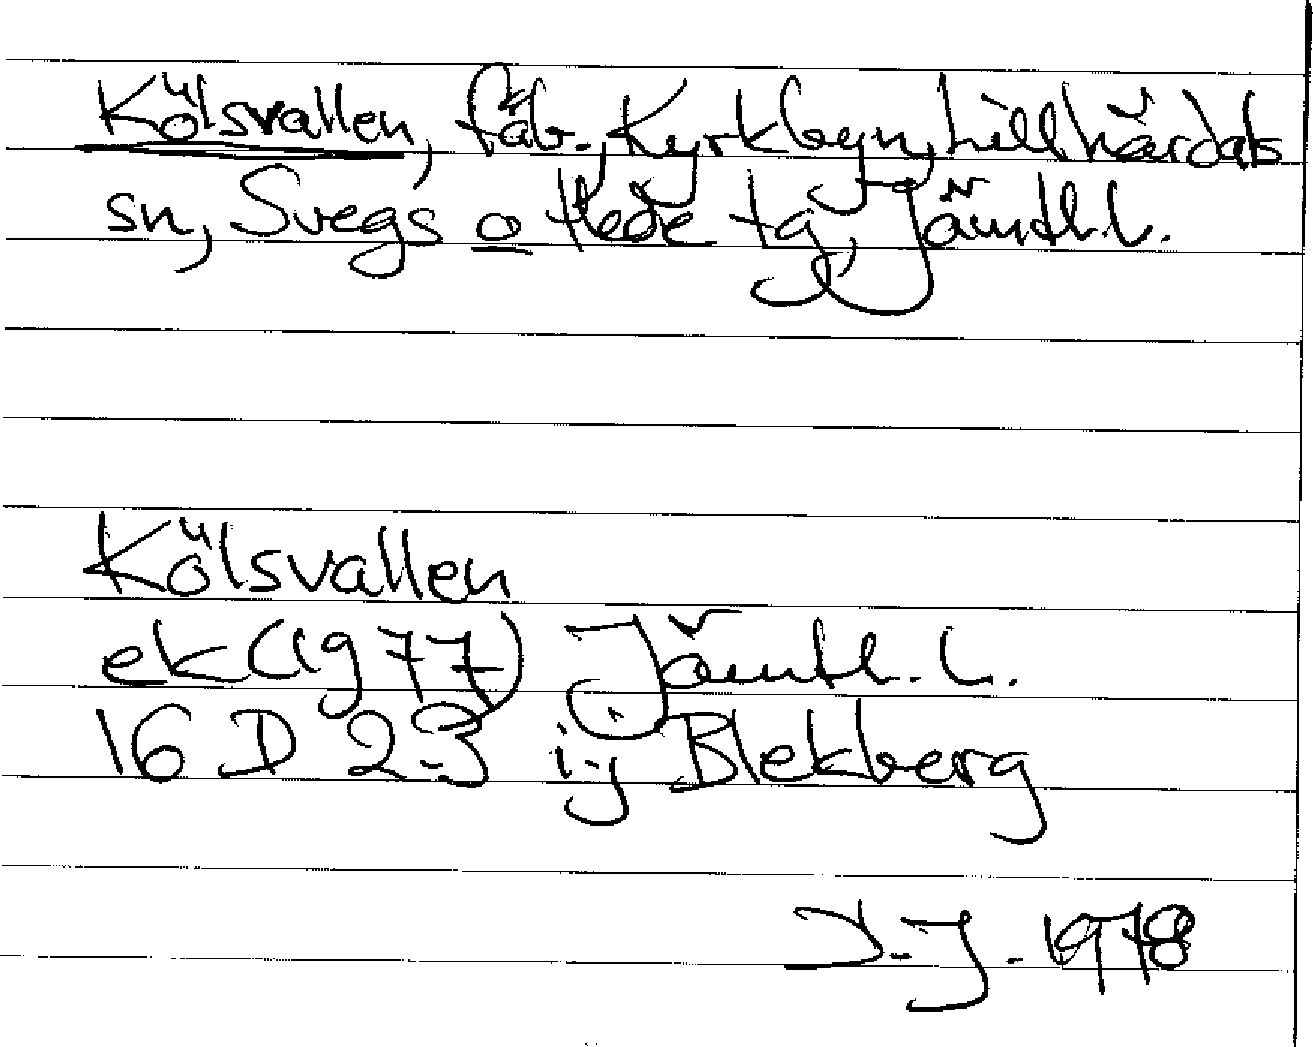 Kölsvallen, fäb., Kyrkbyn, Lillhärdals
sn, Svegs o Hede tg, Jämtl.l.
Kölsvallen
ek (1977) Jämtl. l.
16 D 2-3 i-j Blekberg
D-J. 1978